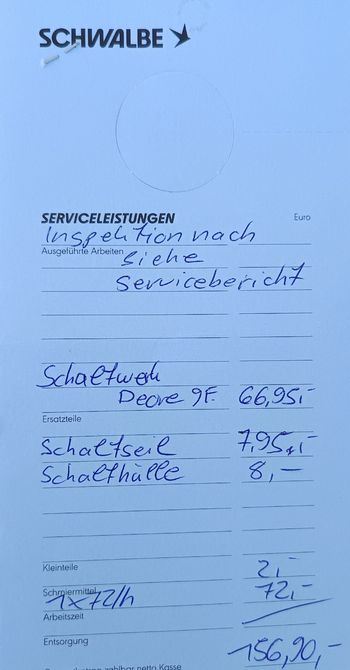 SCHWALBE
SERVICELEISTUNGEN Euro
Inspektion nach
Ausgeführte Arbeiten siehe
Servicebericht
Schaltwerk
Deore 9F. 66,95,-
Ersatzteile
Schaltseil 7,95,-
Schalthülle 8,-
Kleinteile 2,-
Schmiermittel 72,-
1x72/h
Arbeitszeit
Entsorgung 156,90,-